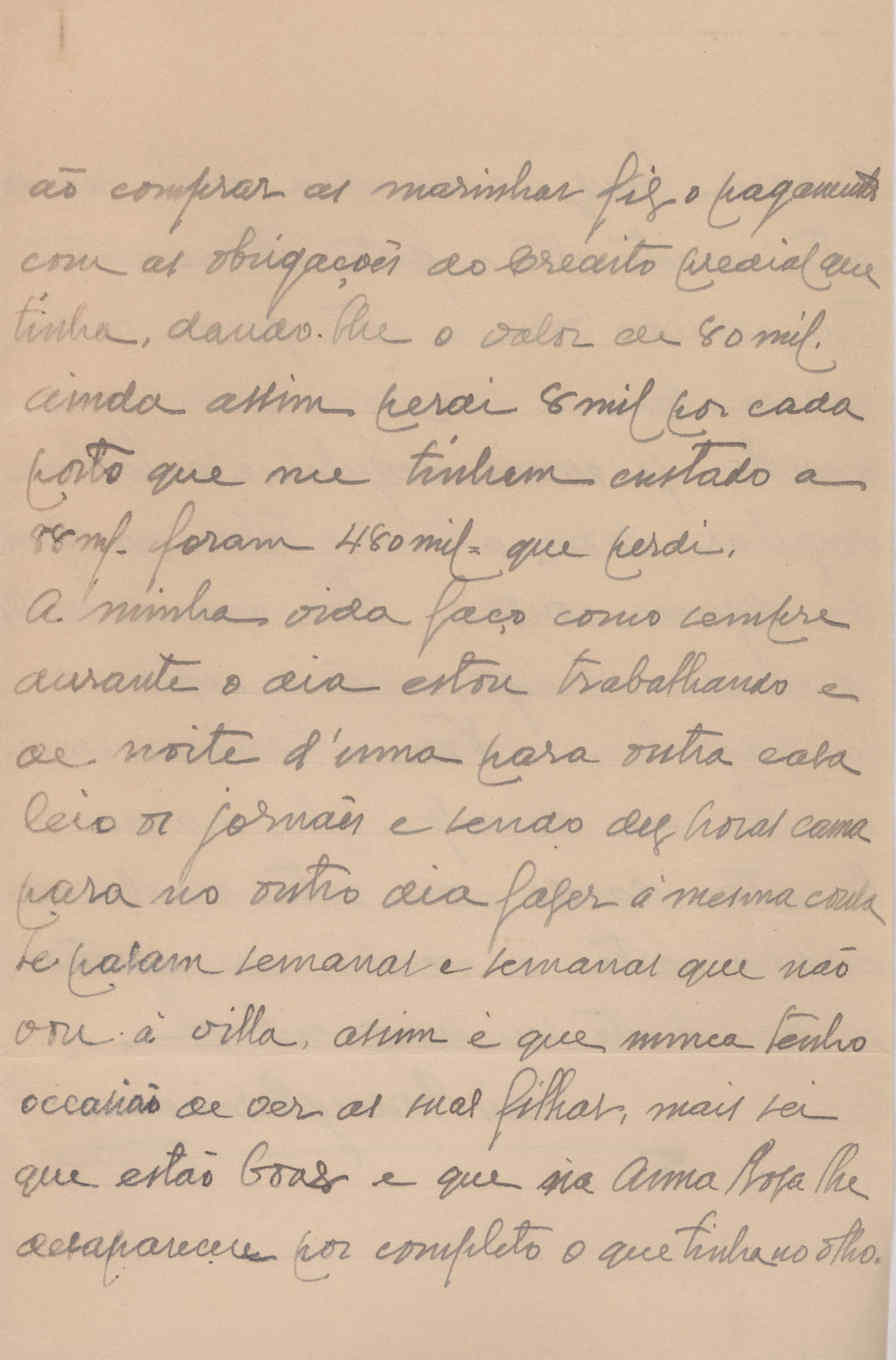 ao comprar as marinhas fiz o pagamento
com as obrigações do Credito predial que
tinha, dando-lhe o valor de 80 mil.
ainda assim perdi 8 mil por cada
que me tinham custado a
88 m/. foram 480 mil= que perdi.
A minha vida faço como sempre
durante o dia estou trabalhando e
de noite d'uma para outra casa
leio os jornaes e sendo dez horas cama
para no outro dia fazer a mesma cousa
se pasam semanas e semanas que não
vou á villa, assim é que nunca tenho
occasião de ver as suas filhas, mais sei
que estão boas e que na Anna Rosa lhe
desapareceu por completo o que tinha no olho.